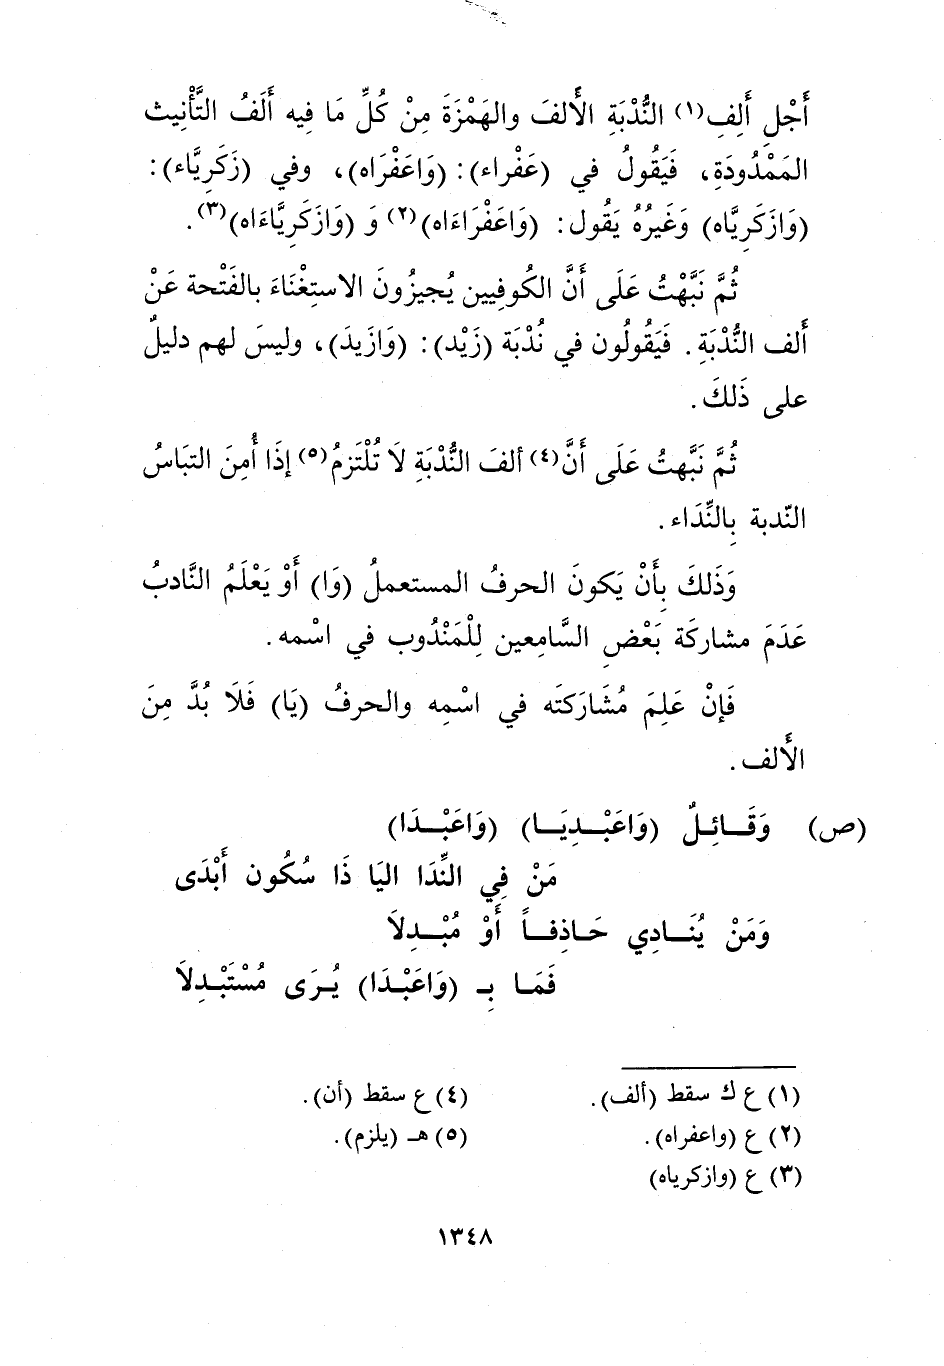 أَجْلِ أَلِفِ(١) النُّدْبَةِ الأَلفَ والهَمْزَةَ مِنْ كُلِّ مَا فِيه أَلَفُ التَّأْنِيث
المَمْدُودَةِ، فَيَقُولُ في (عَفْراء): (وَاعَفْرَاه)، وفي (زَكَرِيَّاء):
(وَازَكَرِيَّاه) وَغَيرُهُ يَقُول: (وَاعَفْرَاءَاه)(٢) وَ (وَازَكَرِيَّاءَاه)(٣).
ثُمَّ نَبَّهْتُ عَلَى أَنَّ الكُوفِيين يُجيزُونَ الاستِغْنَاءَ بالفَتْحة عَنْ
أَلف النُّدْبَةِ. فَيَقُولُون في نُدْبَة (زَيْد): (وَازَيدَ)، وليسَ لهم دليلٌ
على ذَلكَ.
ثُمَّ نَبَّهتُ عَلَى أَنَّ(٤) ألفَ النُّدْبَةِ لَا تُلْتَزمُ(٥) إذَا أُمِنَ التبَاسُ
النّدبة بِالنِّدَاء.
وَذَلكَ بِأَنْ يَكونَ الحرفُ المستعملُ (وَا) أَوْ يَعْلَمُ النَّادبُ
عَدَمَ مشاركَة بَعْضِ السَّامِعين لِلْمَنْدُوب في اسْمه.
فَإنْ عَلِمَ مُشَارَكتَه في اسْمِه والحرفُ (يَا) فَلَا بُدَّ مِنَ
الأَلف.
(ص) وَقَائِلٌ (وَاعَبْدِيَا) (وَاعَبْدَا)
مَنْ فِي النِّدَا اليَا ذَا سُكُون أَبْدَى
وَمَنْ يُنَادِي حَاذِفاً أَوْ مُبْدِلَا
فَمَا بِـ (وَاعَبْدَا) يُرَى مُسْتَبْدِلَا
(١) ع ك سقط (ألف).
(٢) ع (واعفراه).
(٣) ع (وازكرياه)
(٤) ع سقط (أن).
(٥) هـ (يلزم).
١٣٤٨